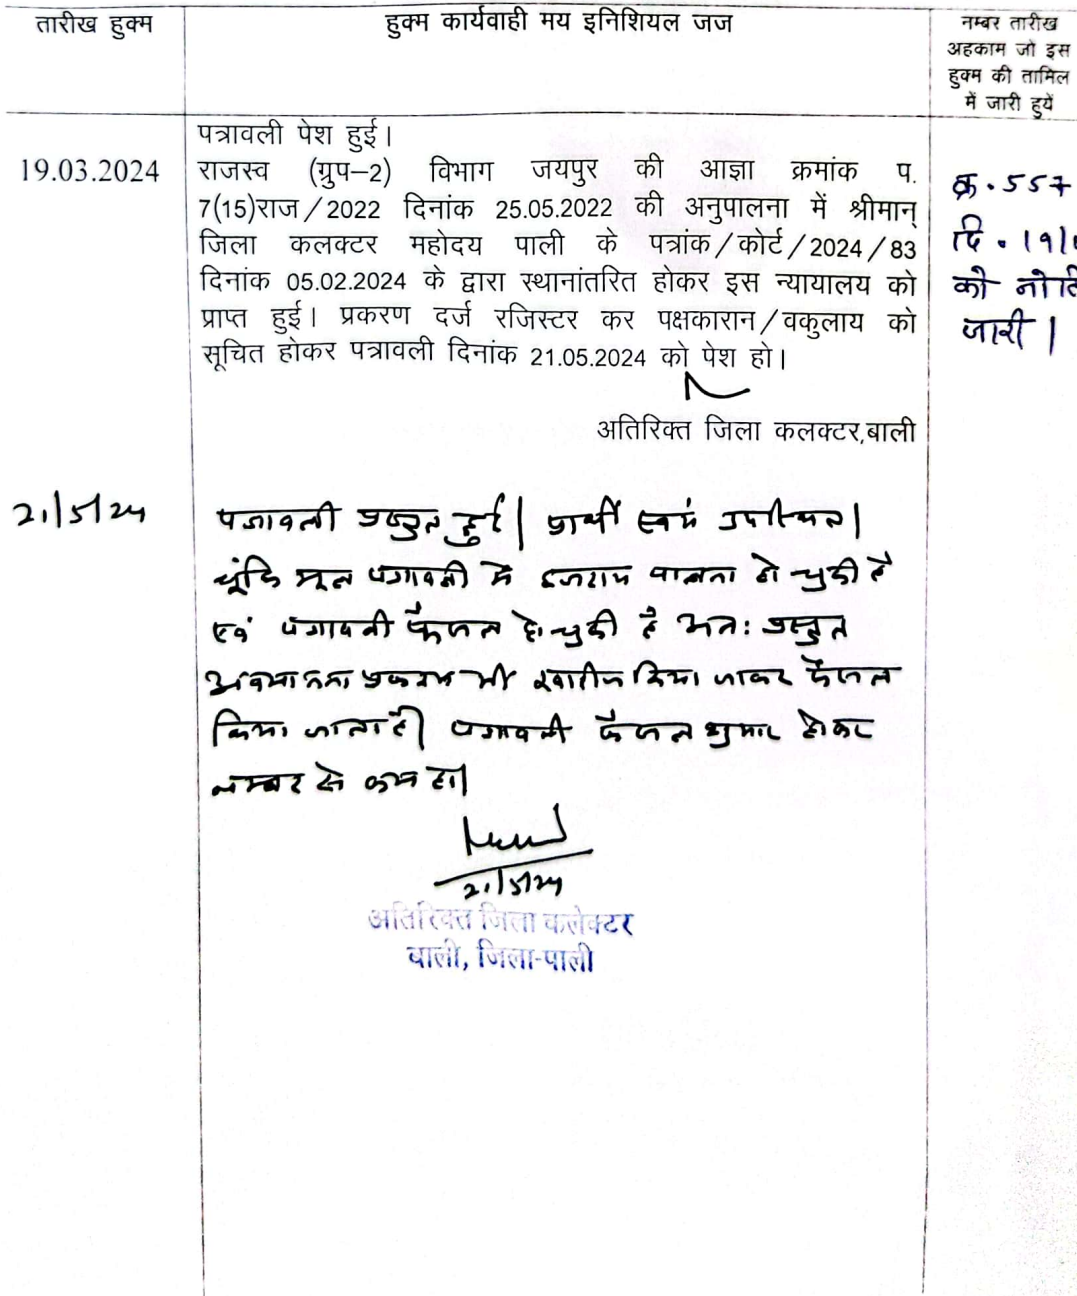 तारीख हुक्म
हुक्म कार्यवाही मय इनिशियल जज
नम्बर तारीख
अहकाम जो इस
हुक्म की तामिल
में जारी हुयें
पत्रावली पेश हुई।
19.03.2024
राजस्व (ग्रुप–2) विभाग जयपुर की आज्ञा क्रमांक प.
7(15)राज/2022 दिनांक 25.05.2022 की अनुपालना में श्रीमान्
जिला कलक्टर महोदय पाली के पत्रांक/कोर्ट/2024/83
दिनांक 05.02.2024 के द्वारा स्थानांतरित होकर इस न्यायालय को
प्राप्त हुई। प्रकरण दर्ज रजिस्टर कर पक्षकारान/वकुलाय को
सूचित होकर पत्रावली दिनांक 21.05.2024 को पेश हो।
अतिरिक्त जिला कलक्टर,बाली
क्र. 557
दि. 19/
को
जारी।
21/5/24
पत्रावली प्रस्तुत हुई। प्रार्थी स्वयं उपस्थित।
चूंकि मूल पत्रावली में इजराय पालना हो चुकी है
एवं पत्रावली फैसल हो चुकी है अतः प्रस्तुत
अवमानना प्रकरण भी खारीज किया जाकर फैसल
किया जाता है। पत्रावली फैसल शुमार होकर
नम्बर से कम हो।
21/5/24
अतिरिक्त जिला कलेक्टर
बाली, जिला-पाली